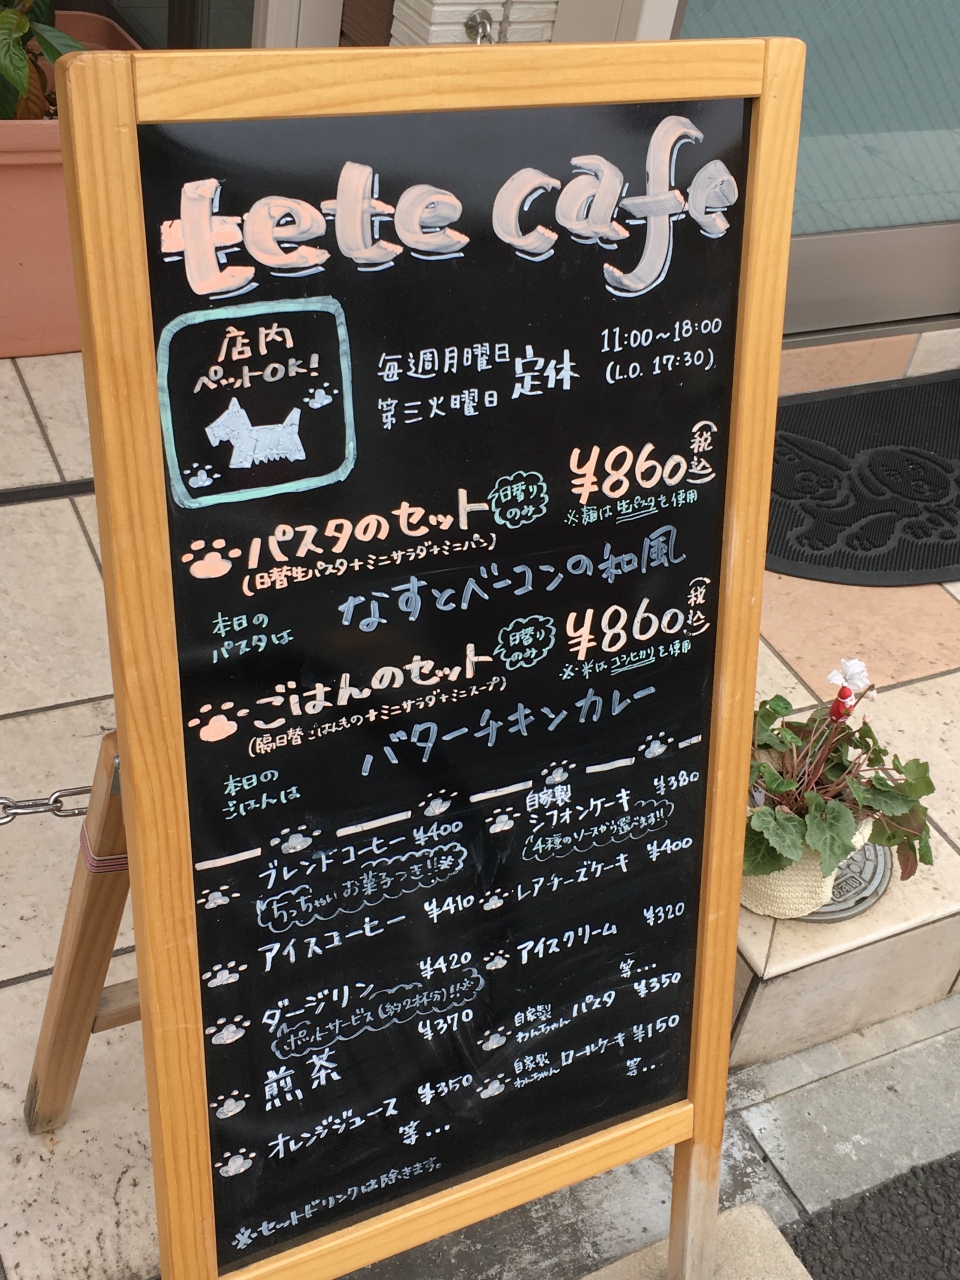 tete cafe
店内
ペットOK!
毎週月曜日
第三火曜日
定休
11:00~18:00
(L.O. 17:30)
パスタのセット
日替り
のみ
¥860
(税込)
※麺は生パスタを使用
(日替生パスタ+ミニサラダ+ミニパン)
本日の
パスタは
なすとベーコンの和風
ごはんのセット
日替り
のみ
¥860
(税込)
※米はコシヒカリを使用
(隔日替ごはんもの+ミニサラダ+ミニスープ)
本日の
ごはんは
バターチキンカレー
ブレンドコーヒー ¥400
ちっちゃいお菓子つき!!※
アイスコーヒー ¥410
ダージリン ¥420
ポットサービス(約2杯分)!!※
煎茶 ¥370
オレンジジュース ¥350
等...
※セットドリンクは除きます。
自家製
シフォンケーキ ¥380
4種のソースから選べます!!
レアチーズケーキ ¥400
アイスクリーム ¥320
等...
自家製
わんちゃんパスタ ¥350
自家製
わんちゃんロールケーキ ¥150
等...